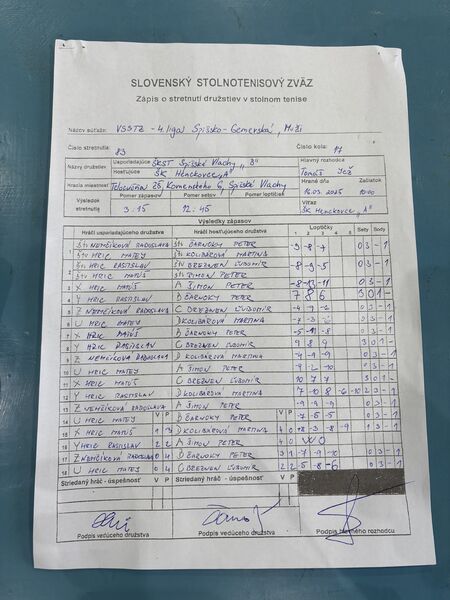 SLOVENSKÝ STOLNOTENISOVÝ ZVÄZ
Zápis o stretnutí družstiev v stolnom tenise
Názov súťaže: VSSTZ - 4. liga Spišsko-Gemerská, Muži
Číslo stretnutia: 83 Číslo kola: 17
Názov družstiev Usporiadajúce ŠKST Spišské Vlachy „B" Hlavný rozhodca
Hosťujúce ŠK Henckovce „A" Tomáš Jež
Hracia miestnosť Telocvičňa ZŠ, Komenského 6, Spišské Vlachy Hrané dňa 16.03.2025 Začiatok 10:00
Výsledok stretnutia Pomer zápasov Pomer setov Pomer loptičiek Víťaz
3:15 12:45 ŠK Henckovce „A"
Výsledky zápasov
Hráči usporiadajúceho družstva Hráči hosťujúceho družstva Loptičky Sety Body
1 2 3 4 5
NEMČÍKOVÁ RADOSLAVA BARNOKY PETER -9 -8 -7 0 3 -1
HRIC MATEJ KOLIBÁROVÁ MARTINA
HRIC RASTISLAV BREZNEN ĽUBOMÍR -8 -9 -5 0 3 -1
HRIC MATÚŠ ŠIMON PETER
3 X HRIC MATÚŠ A ŠIMON PETER -8 -13 -11 0 3 -1
4 Y HRIC RASTISLAV B BARNOKY PETER 7 8 6 3 0 1 -
5 Z NEMČÍKOVÁ RADOSLAVA C BREZNEN ĽUBOMÍR 0 3 -1
6 U HRIC MATEJ D KOLIBÁROVÁ MARTINA -7 -3 0 3 -1
7 X HRIC MATÚŠ B BARNOKY PETER -5 -11 -8 0 3 -1
8 Y HRIC RASTISLAV C BREZNEN ĽUBOMÍR 9 8 9 3 0 1 -
9 Z NEMČÍKOVÁ RADOSLAVA D KOLIBÁROVÁ MARTINA -4 -9 -9 0 3 -1
10 U HRIC MATEJ A ŠIMON PETER -9 -2 -10 0 3 -1
11 X HRIC MATÚŠ C BREZNEN ĽUBOMÍR 10 7 7 3 0 1 -
12 Y HRIC RASTISLAV D KOLIBÁROVÁ MARTINA 7 -10 8 -6 -10 2 3 -1
13 Z NEMČÍKOVÁ RADOSLAVA A ŠIMON PETER -9 -9 -9 0 3 -1
14 U HRIC MATEJ V P B BARNOKY PETER V P -7 -5 -5 0 3 -1
15 X HRIC MATÚŠ 1 3 D KOLIBÁROVÁ MARTINA 4 0 -3 -8 -9 -1
16 Y HRIC RASTISLAV 2 2 A ŠIMON PETER 4 0 WO 0 3 -1
17 Z NEMČÍKOVÁ RADOSLAVA 0 4 B BARNOKY PETER 3 1 -7 -9 -10 0 3 -1
18 U HRIC MATEJ 0 4 C BREZNEN ĽUBOMÍR 2 2 -5 -8 -6 0 3 -1
Striedaný hráč - úspešnosť V P Striedaný hráč - úspešnosť V P
Podpis vedúceho družstva Podpis vedúceho družstva Podpis hlavného rozhodcu